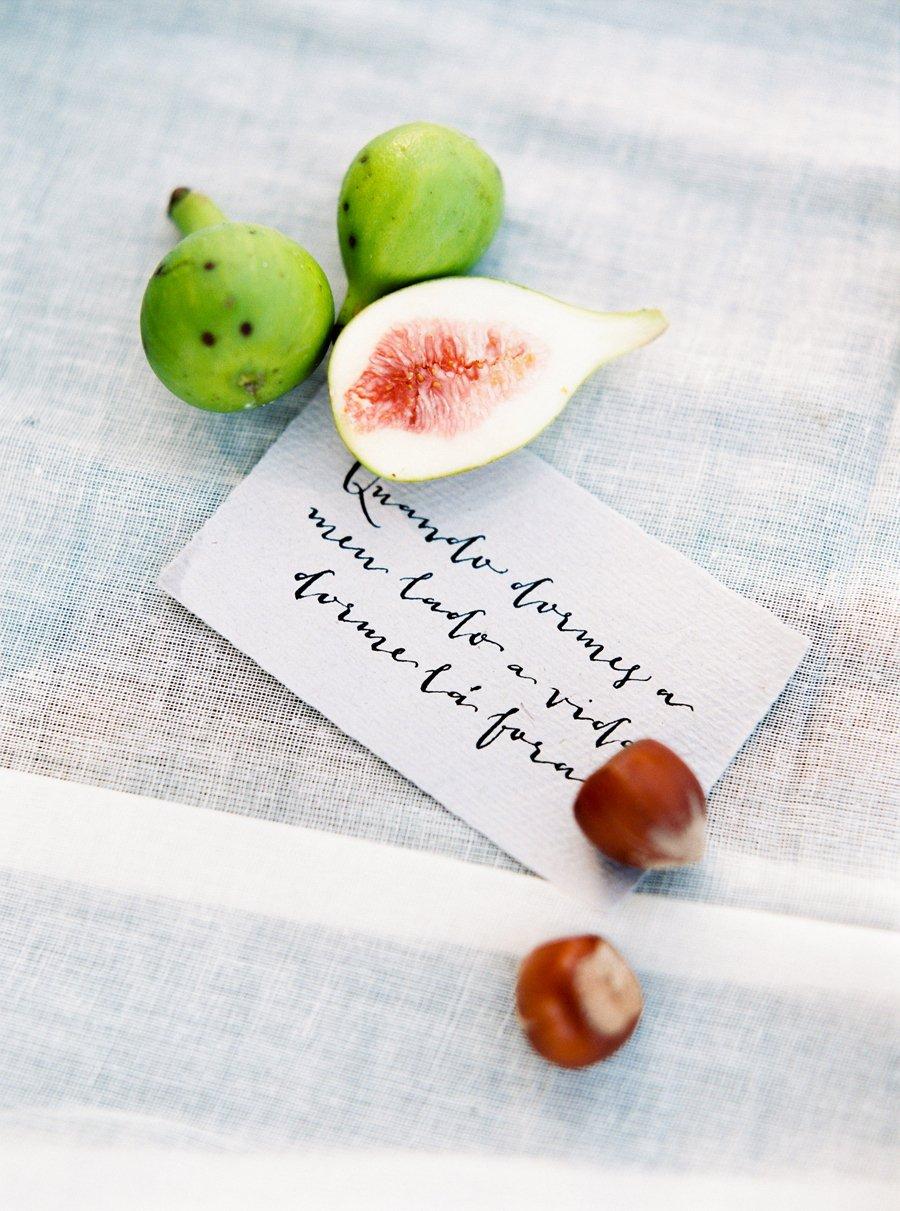 Quando dormes a
meu lado a vida
dorme lá fora